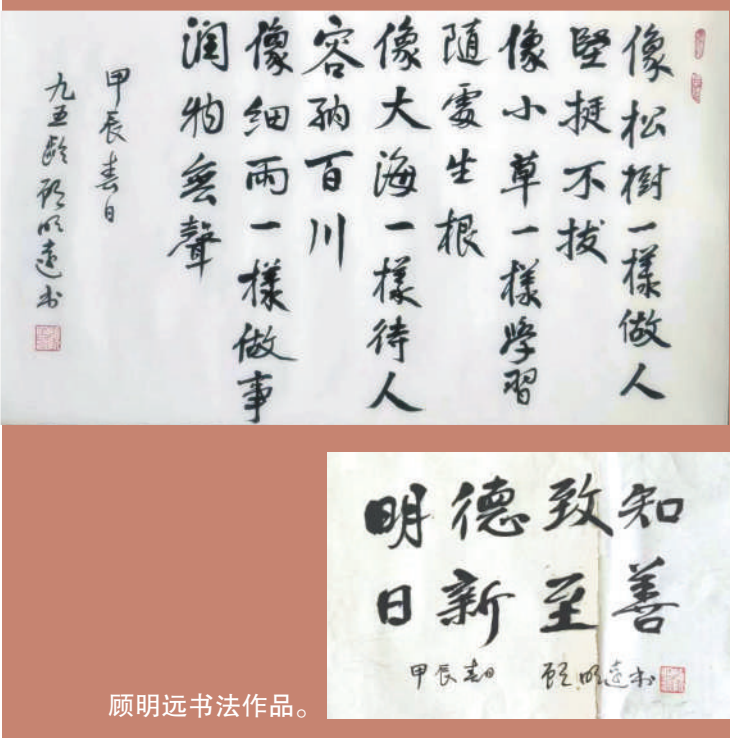 像松樹一樣做人
堅挺不拔
像小草一樣學習
隨處生根
像大海一樣待人
容納百川
像細雨一樣做事
潤物無聲
甲辰春日
九五齡顾明遠书
明德致知
日新至善
甲辰春日 顾明遠书
顾明远书法作品。